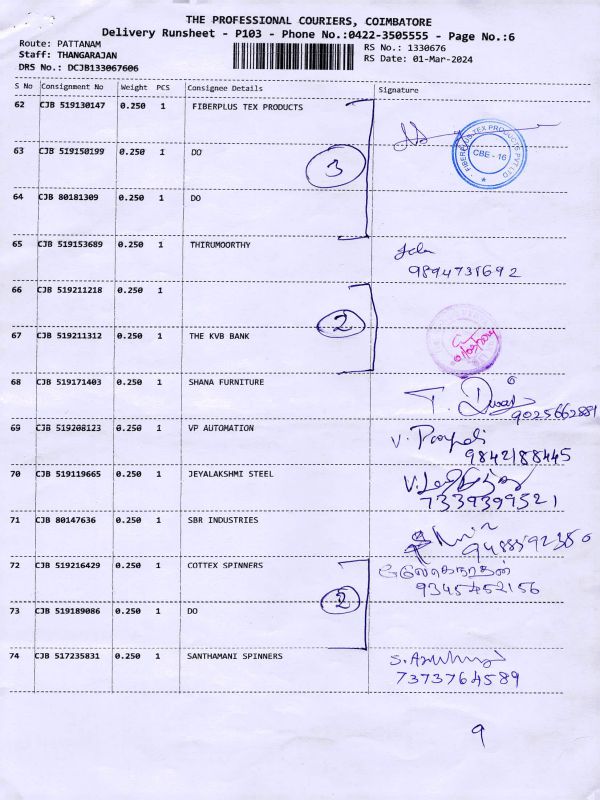 THE PROFESSIONAL COURIERS, COIMBATORE
Delivery Runsheet - P103 - Phone No.:0422-3505555 - Page No.:6
Route: PATTANAM
RS No.: 1330676
Staff: THANGARAJAN
RS Date: 01-Mar-2024
DRS No.: DCJB133067606
S No Consignment No Weight PCS Consignee Details Signature
62 CJB 519130147 0.250 1 FIBERPLUS TEX PRODUCTS
FIBERPLUS TEX PRODUCTS PVT LTD
CBE - 16
63 CJB 519150199 0.250 1 DO
3
64 CJB 80181309 0.250 1 DO
65 CJB 519153689 0.250 1 THIRUMOORTHY
9894731692
66 CJB 519211218 0.250 1
2
67 CJB 519211312 0.250 1 THE KVB BANK
68 CJB 519171403 0.250 1 SHANA FURNITURE
9025662881
69 CJB 519208123 0.250 1 VP AUTOMATION
9842188445
70 CJB 519119665 0.250 1 JEYALAKSHMI STEEL
7339399521
71 CJB 80147636 0.250 1 SBR INDUSTRIES
72 CJB 519216429 0.250 1 COTTEX SPINNERS
9345452156
73 CJB 519189086 0.250 1 DO
2
74 CJB 517235831 0.250 1 SANTHAMANI SPINNERS
7373764589
9